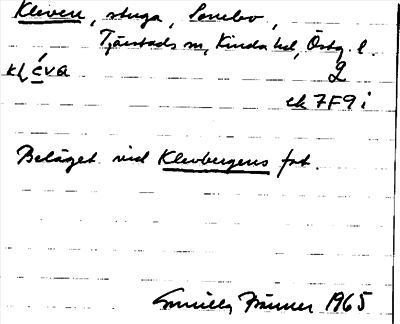 Kleven, stuga, Sonebo,
Tjärstads sn, Kinda hd, Östg. l.
2
ek 7F9 i
Beläget vid Klevbergens fot.
Gunilla 1965